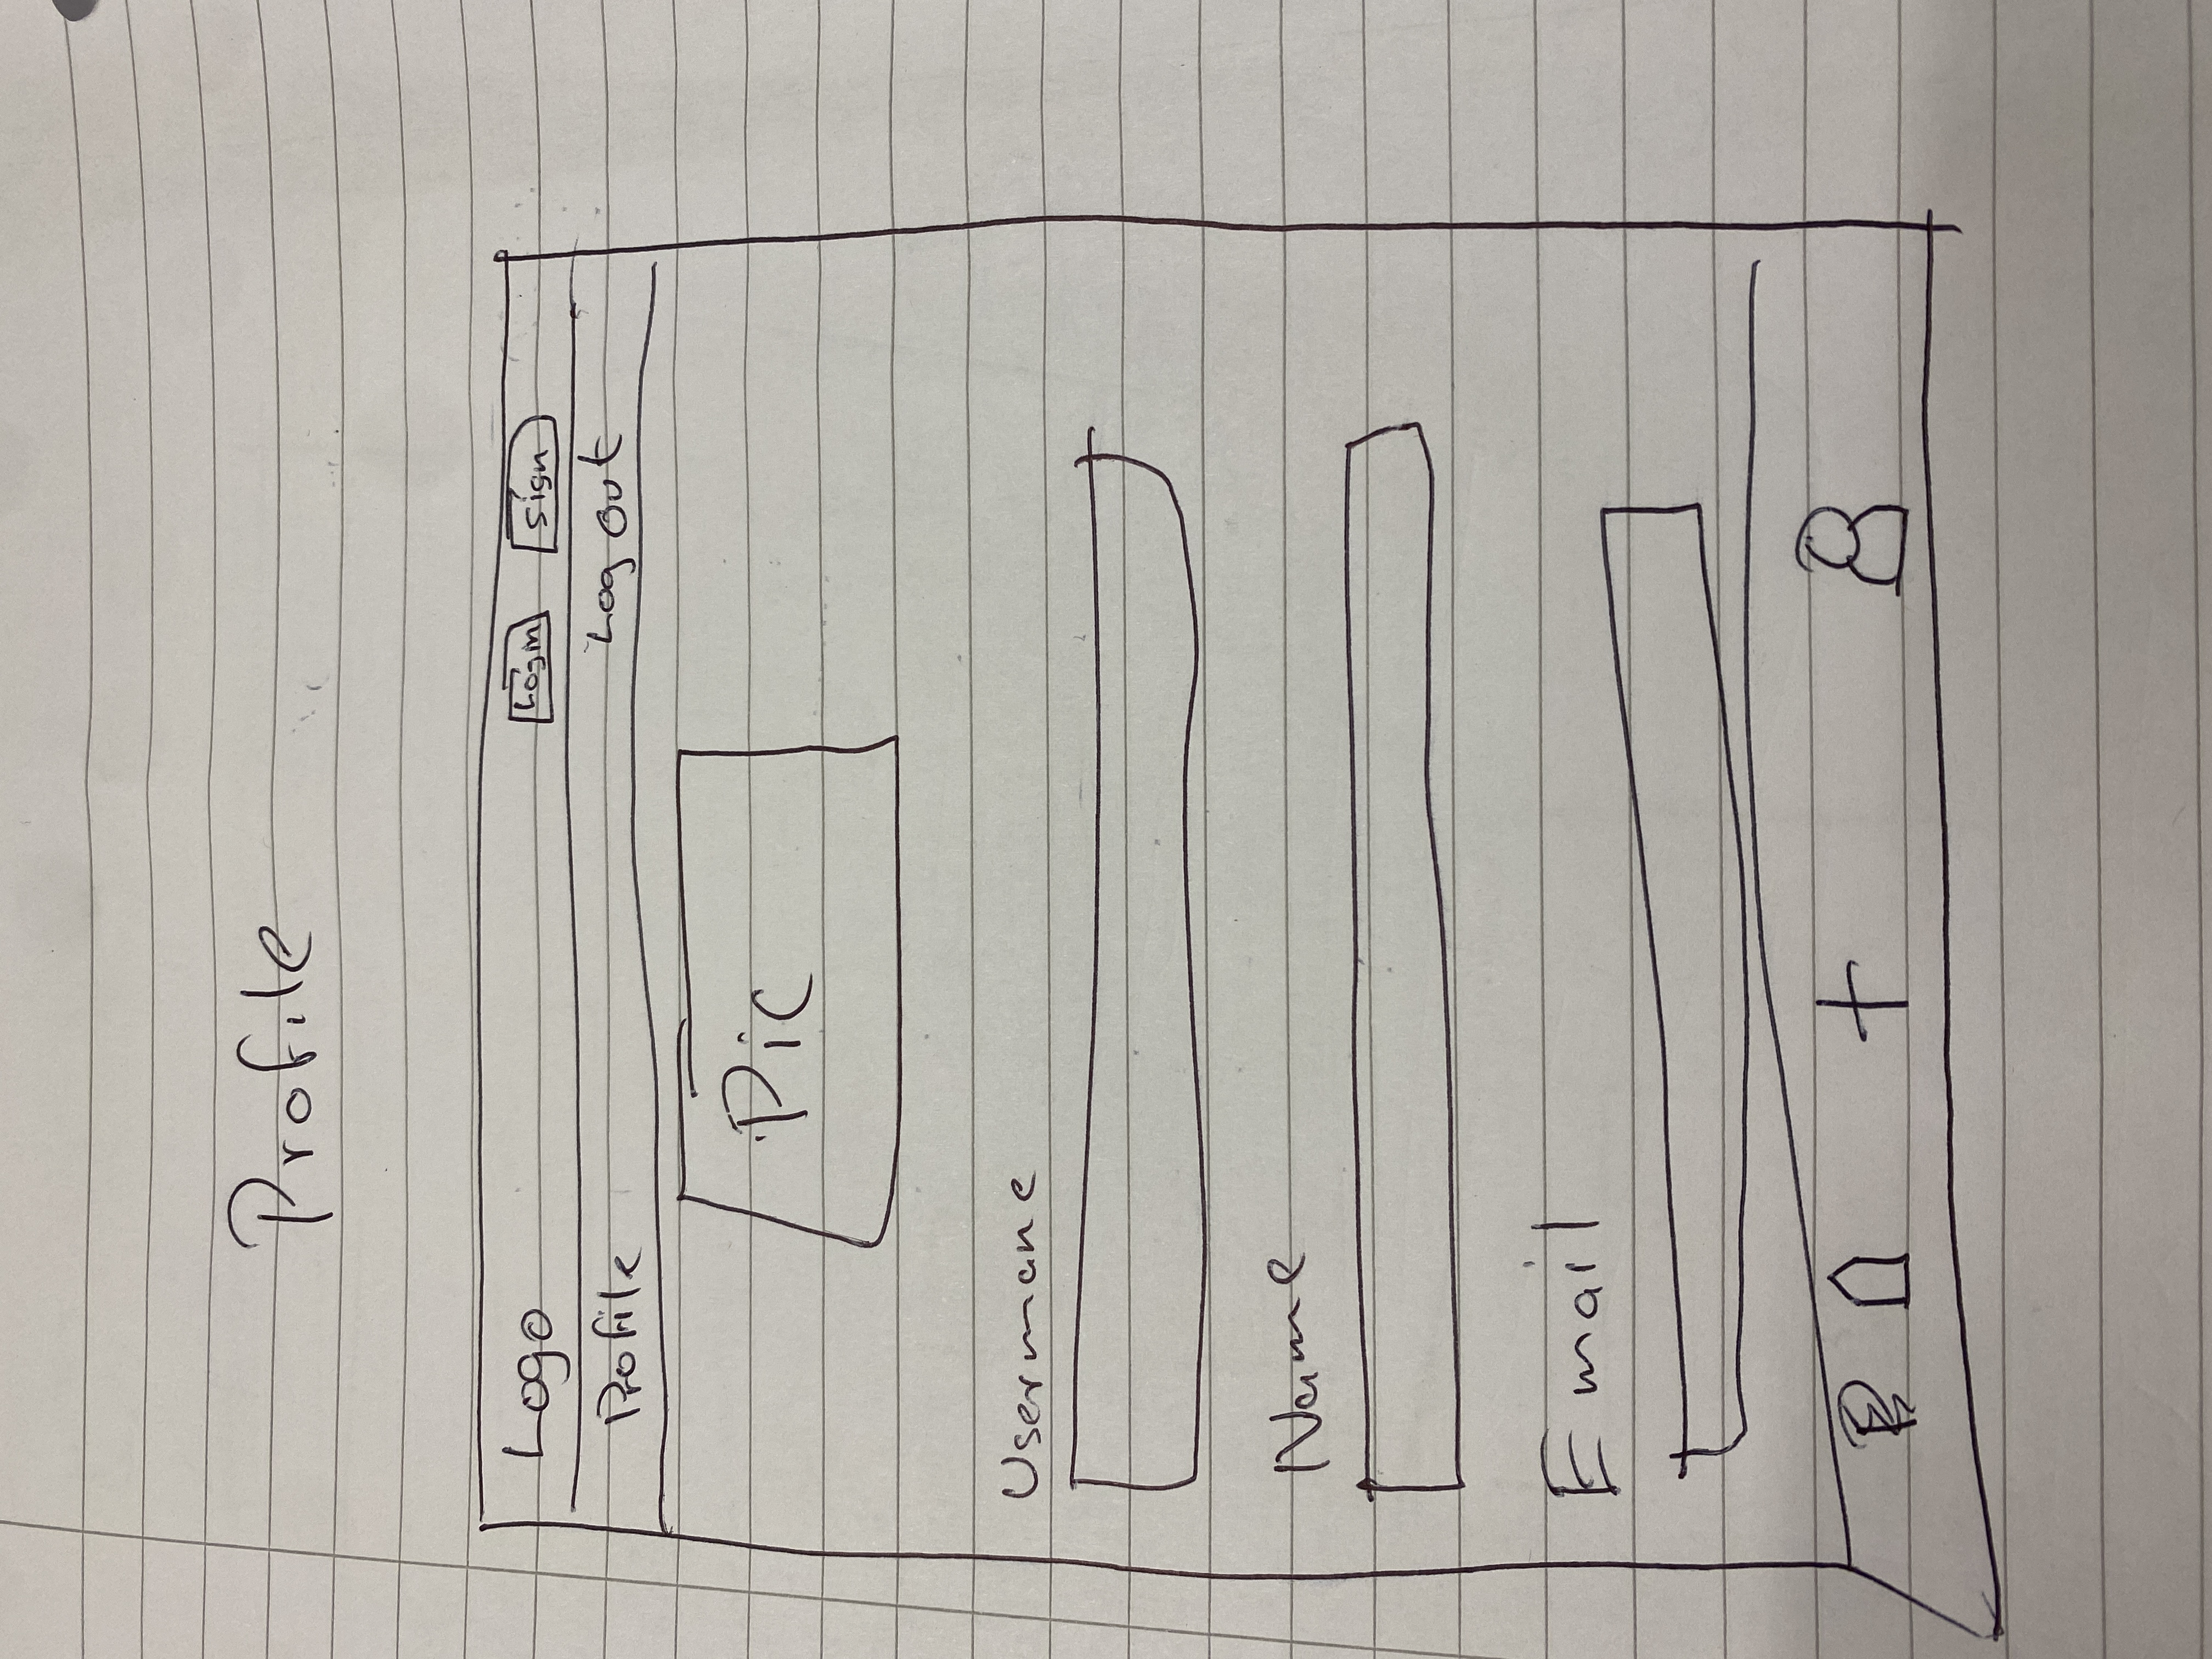 Profile
Logo Login Sign
Profile Log out
Pic
Usermane
Name
Email